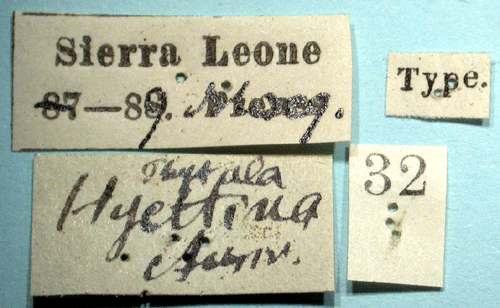 Sierra Leone
87—89. Mocq.
Type.
Hyettina
Auriv.
32